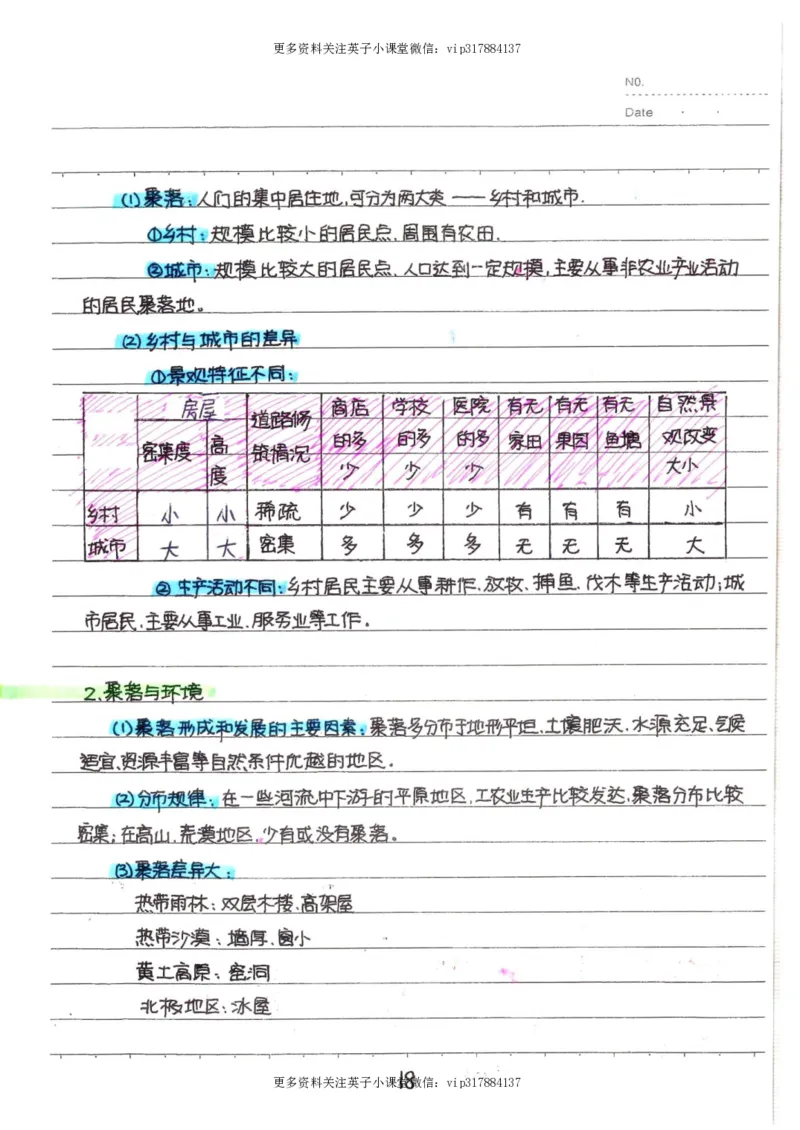 更多资料关注英子小课堂微信：vip317884137
NO.
Date
(1)聚落：人们的集中居住地,可分为两大类——乡村和城市.
①乡村：规模比较小的居民点、周围有农田.
②城市：规模比较大的居民点、人口达到一定规模,主要从事非农业产业活动
的居民聚落地。
(2)乡村与城市的差异
①景观特征不同：
房屋 道路修筑情况 商店的多少 学校的多少 医院的多少 有无家田 有无果园 有无鱼塘 自然景观改变大小
密集度 高度
乡村 小 小 稀疏 少 少 少 有 有 有 小
城市 大 大 密集 多 多 多 无 无 无 大
②生产活动不同：乡村居民主要从事耕作、放牧、捕鱼、伐木等生产活动;城
市居民、主要从事工业、服务业等工作。
2、聚落与环境
(1)聚落形成和发展的主要因素：聚落多分布于地形平坦、土壤肥沃、水源充足、气候
适宜、资源丰富等自然条件优越的地区。
(2)分布规律：在一些河流中下游的平原地区,工农业生产比较发达,聚落分布比较
密集；在高山、荒漠地区,少有或没有聚落。
(3)聚落差异大：
热带雨林：双层木楼、高架屋
热带沙漠：墙厚、窗小
黄土高原：窑洞
北极地区：冰屋
18
更多资料关注英子小课堂微信：vip317884137